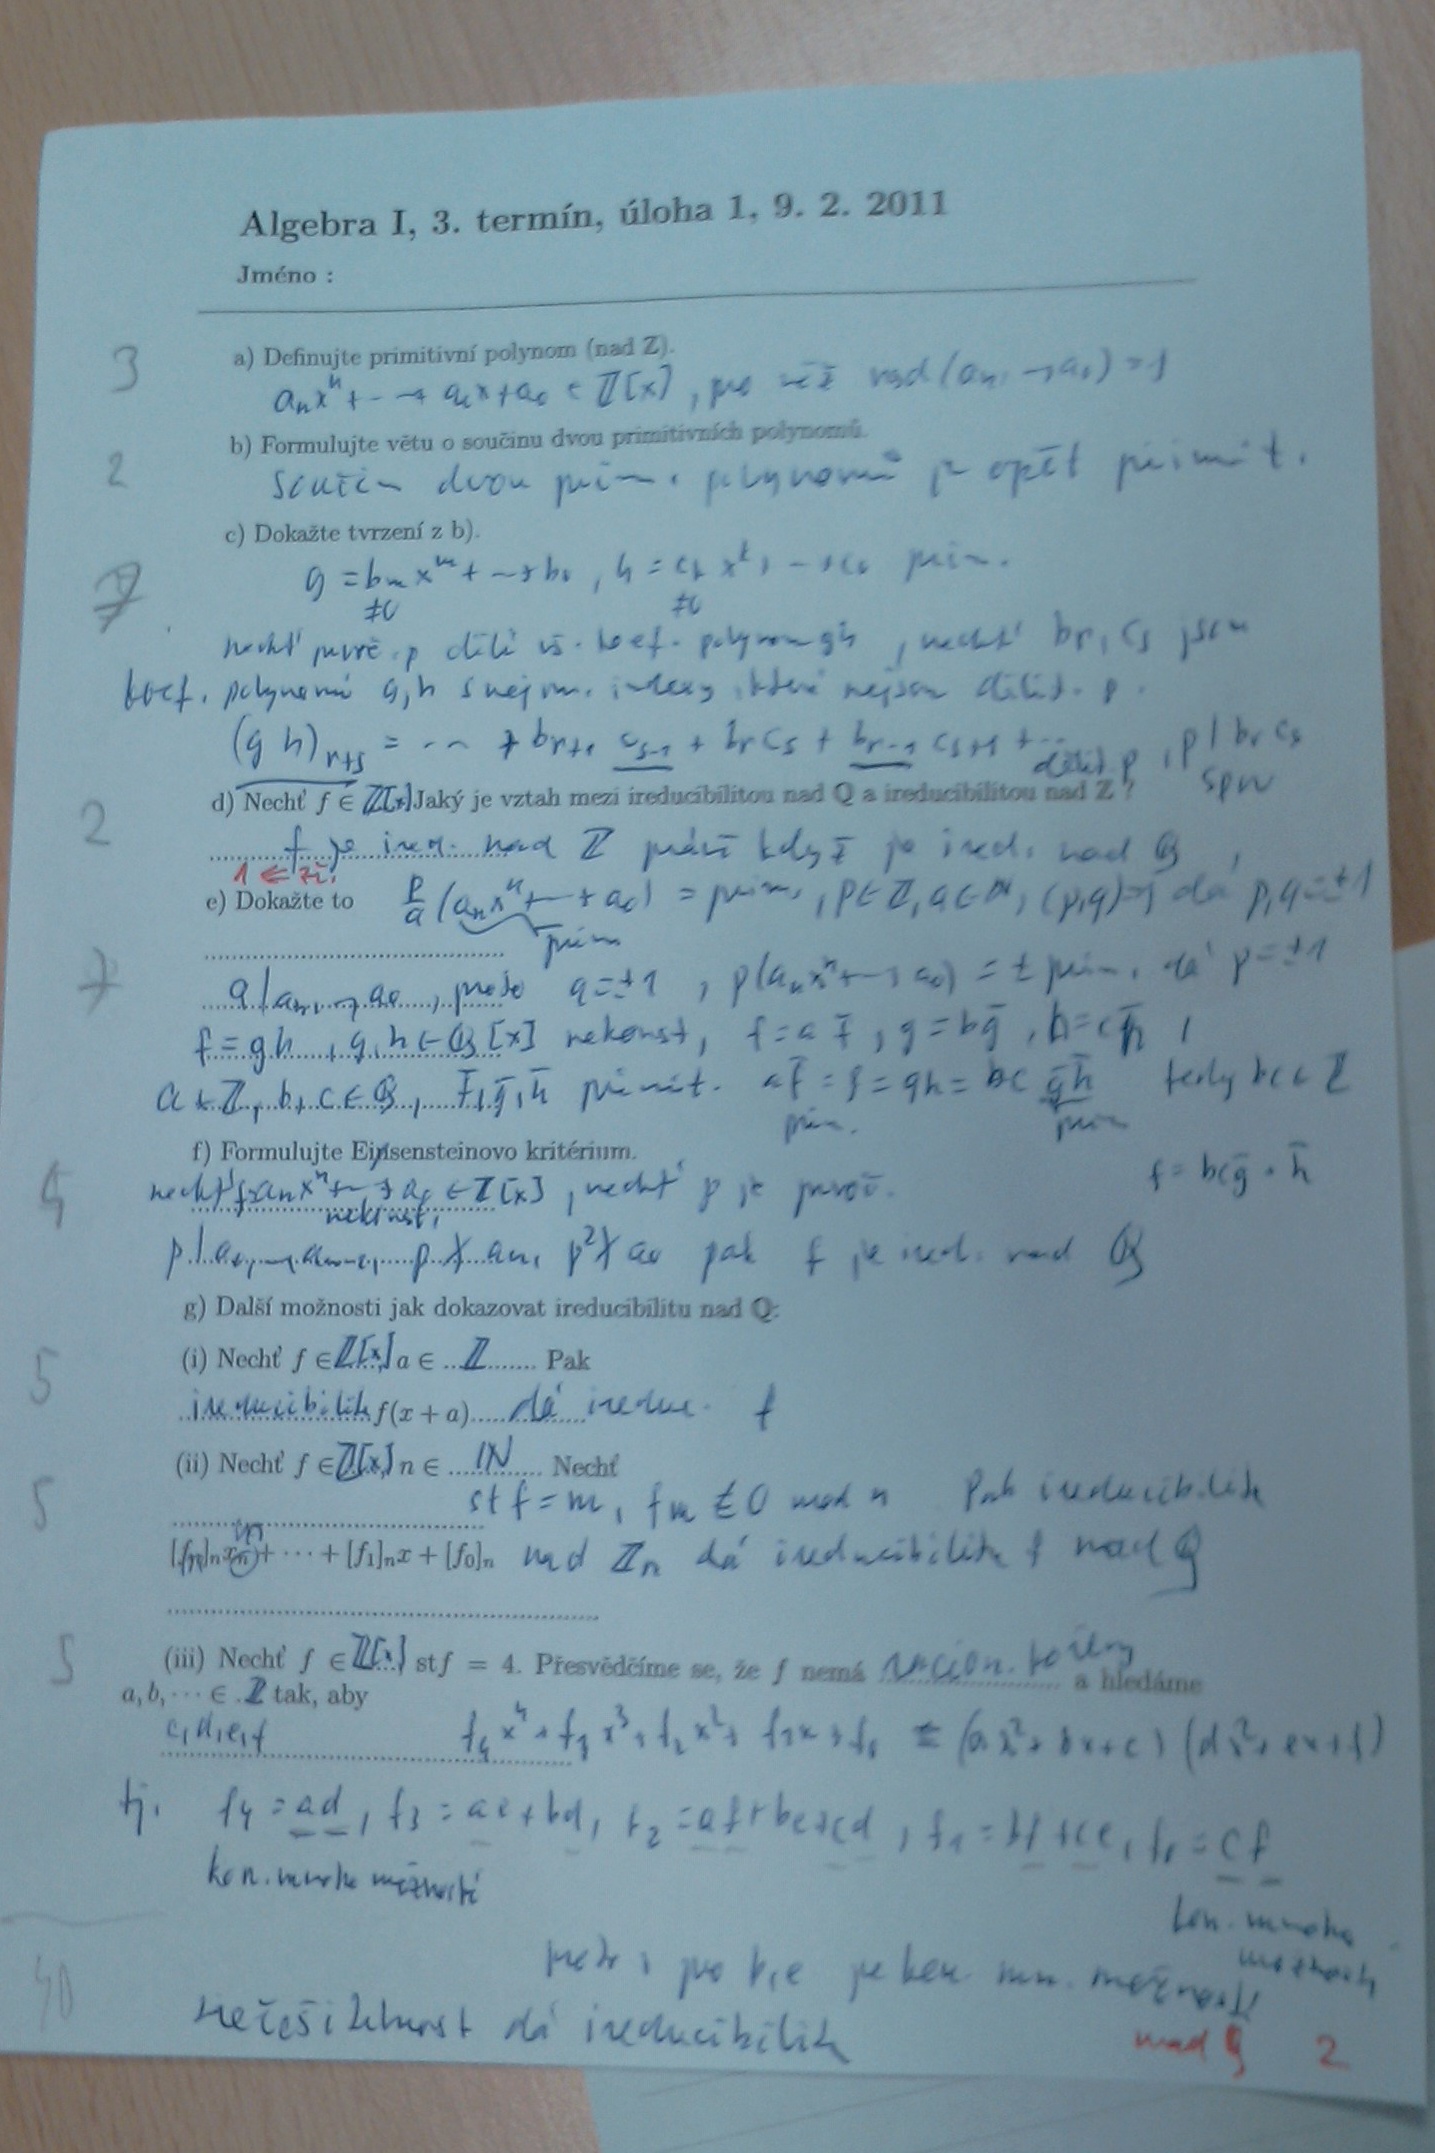 Algebra I, 3. termín, úloha 1, 9. 2. 2011
Jméno :
3
a) Definujte primitivní polynom (nad ℤ).
aₙxⁿ + ... + a₁x + a₀ ∈ ℤ[x], pro něž nsd(aₙ, ..., a₀) = 1
b) Formulujte větu o součinu dvou primitivních polynomů.
2
Součin dvou prim. polynomů je opět primit.
c) Dokažte tvrzení z b).
7
g = bₘxᵐ + ... + b₀, h = cₖxᵏ + ... + c₀ prim.
≠0 ≠0
nechť prvč. p dělí vš. koef. polynomu gh, nechť bᵣ, cₛ jsou
koef. polynomů g, h s nejm. indexy, které nejsou dělit. p.
(g h)ᵣ₊ₛ = ... + bᵣ₊₁ cₛ₋₁ + bᵣcₛ + bᵣ₋₁ cₛ₊₁ + ...
dělit. p, p | bᵣ cₛ
spor
d) Nechť f ∈ ℤ[x] Jaký je vztah mezi ireducibilitou nad ℚ a ireducibilitou nad ℤ ?
2
f je ired. nad ℤ právě když je ired. nad ℚ
1 ⇐ zř.
e) Dokažte to p/q (aₙxⁿ + ... + a₀) = prim., p ∈ ℤ, q ∈ ℕ, (p,q)=1 dá p,q = ±1
prim
7
q | aₙ, ..., a₀, proto q = ±1, p(aₙxⁿ + ... + a₀) = ± prim. dá p = ±1
f = gh, g,h ∈ ℚ[x] nekonst, f = a f̄, g = b ḡ, h = c h̄,
a ∈ ℤ, b, c ∈ ℚ, f̄, ḡ, h̄ primit. a f̄ = f = gh = bc ḡh̄ tedy bc ∈ ℤ
prim. prim
f) Formulujte Einsensteinovo kritérium.
f = bcḡ · h̄
4
nechť f = aₙxⁿ + ... + a₀ ∈ ℤ[x], nechť p je prvoč.
nekonst,
p | a₀, ..., aₙ₋₁, p ∤ aₙ, p² ∤ a₀ pak f je ired. nad ℚ
g) Další možnosti jak dokazovat ireducibilitu nad ℚ:
(i) Nechť f ∈ ℤ[x] a ∈ ...ℤ........ Pak
5
ireducibilita f(x + a)..... dá ireduc. f
(ii) Nechť f ∈ ℤ[x] n ∈ ....ℕ........ Nechť
5
st f = m, fₘ ≢ 0 mod n Pak ireducibilita
m
[fₘ]ₙxₙ + ··· + [f₁]ₙx + [f₀]ₙ nad ℤₙ dá ireducibilitu f nad ℚ
5
(iii) Nechť f ∈ ℤ[x] stf = 4. Přesvědčíme se, že f nemá racion. kořeny a hledáme
a, b, ··· ∈ ℤ tak, aby
c,d,e,f f₄x⁴ + f₃x³ + f₂x² + f₁x + f₀ = (ax² + bx + c) (dx² + ex + f)
tj. f₄ = ad, f₃ = ae + bd, f₂ = af + be + cd, f₁ = bf + ce, f₀ = cf
kon. mnoho možností
kon. mnoho
možností
proto i pro b,e je kon. mn. možností
40
neřešitelnost dá ireducibilitu
nad ℚ 2